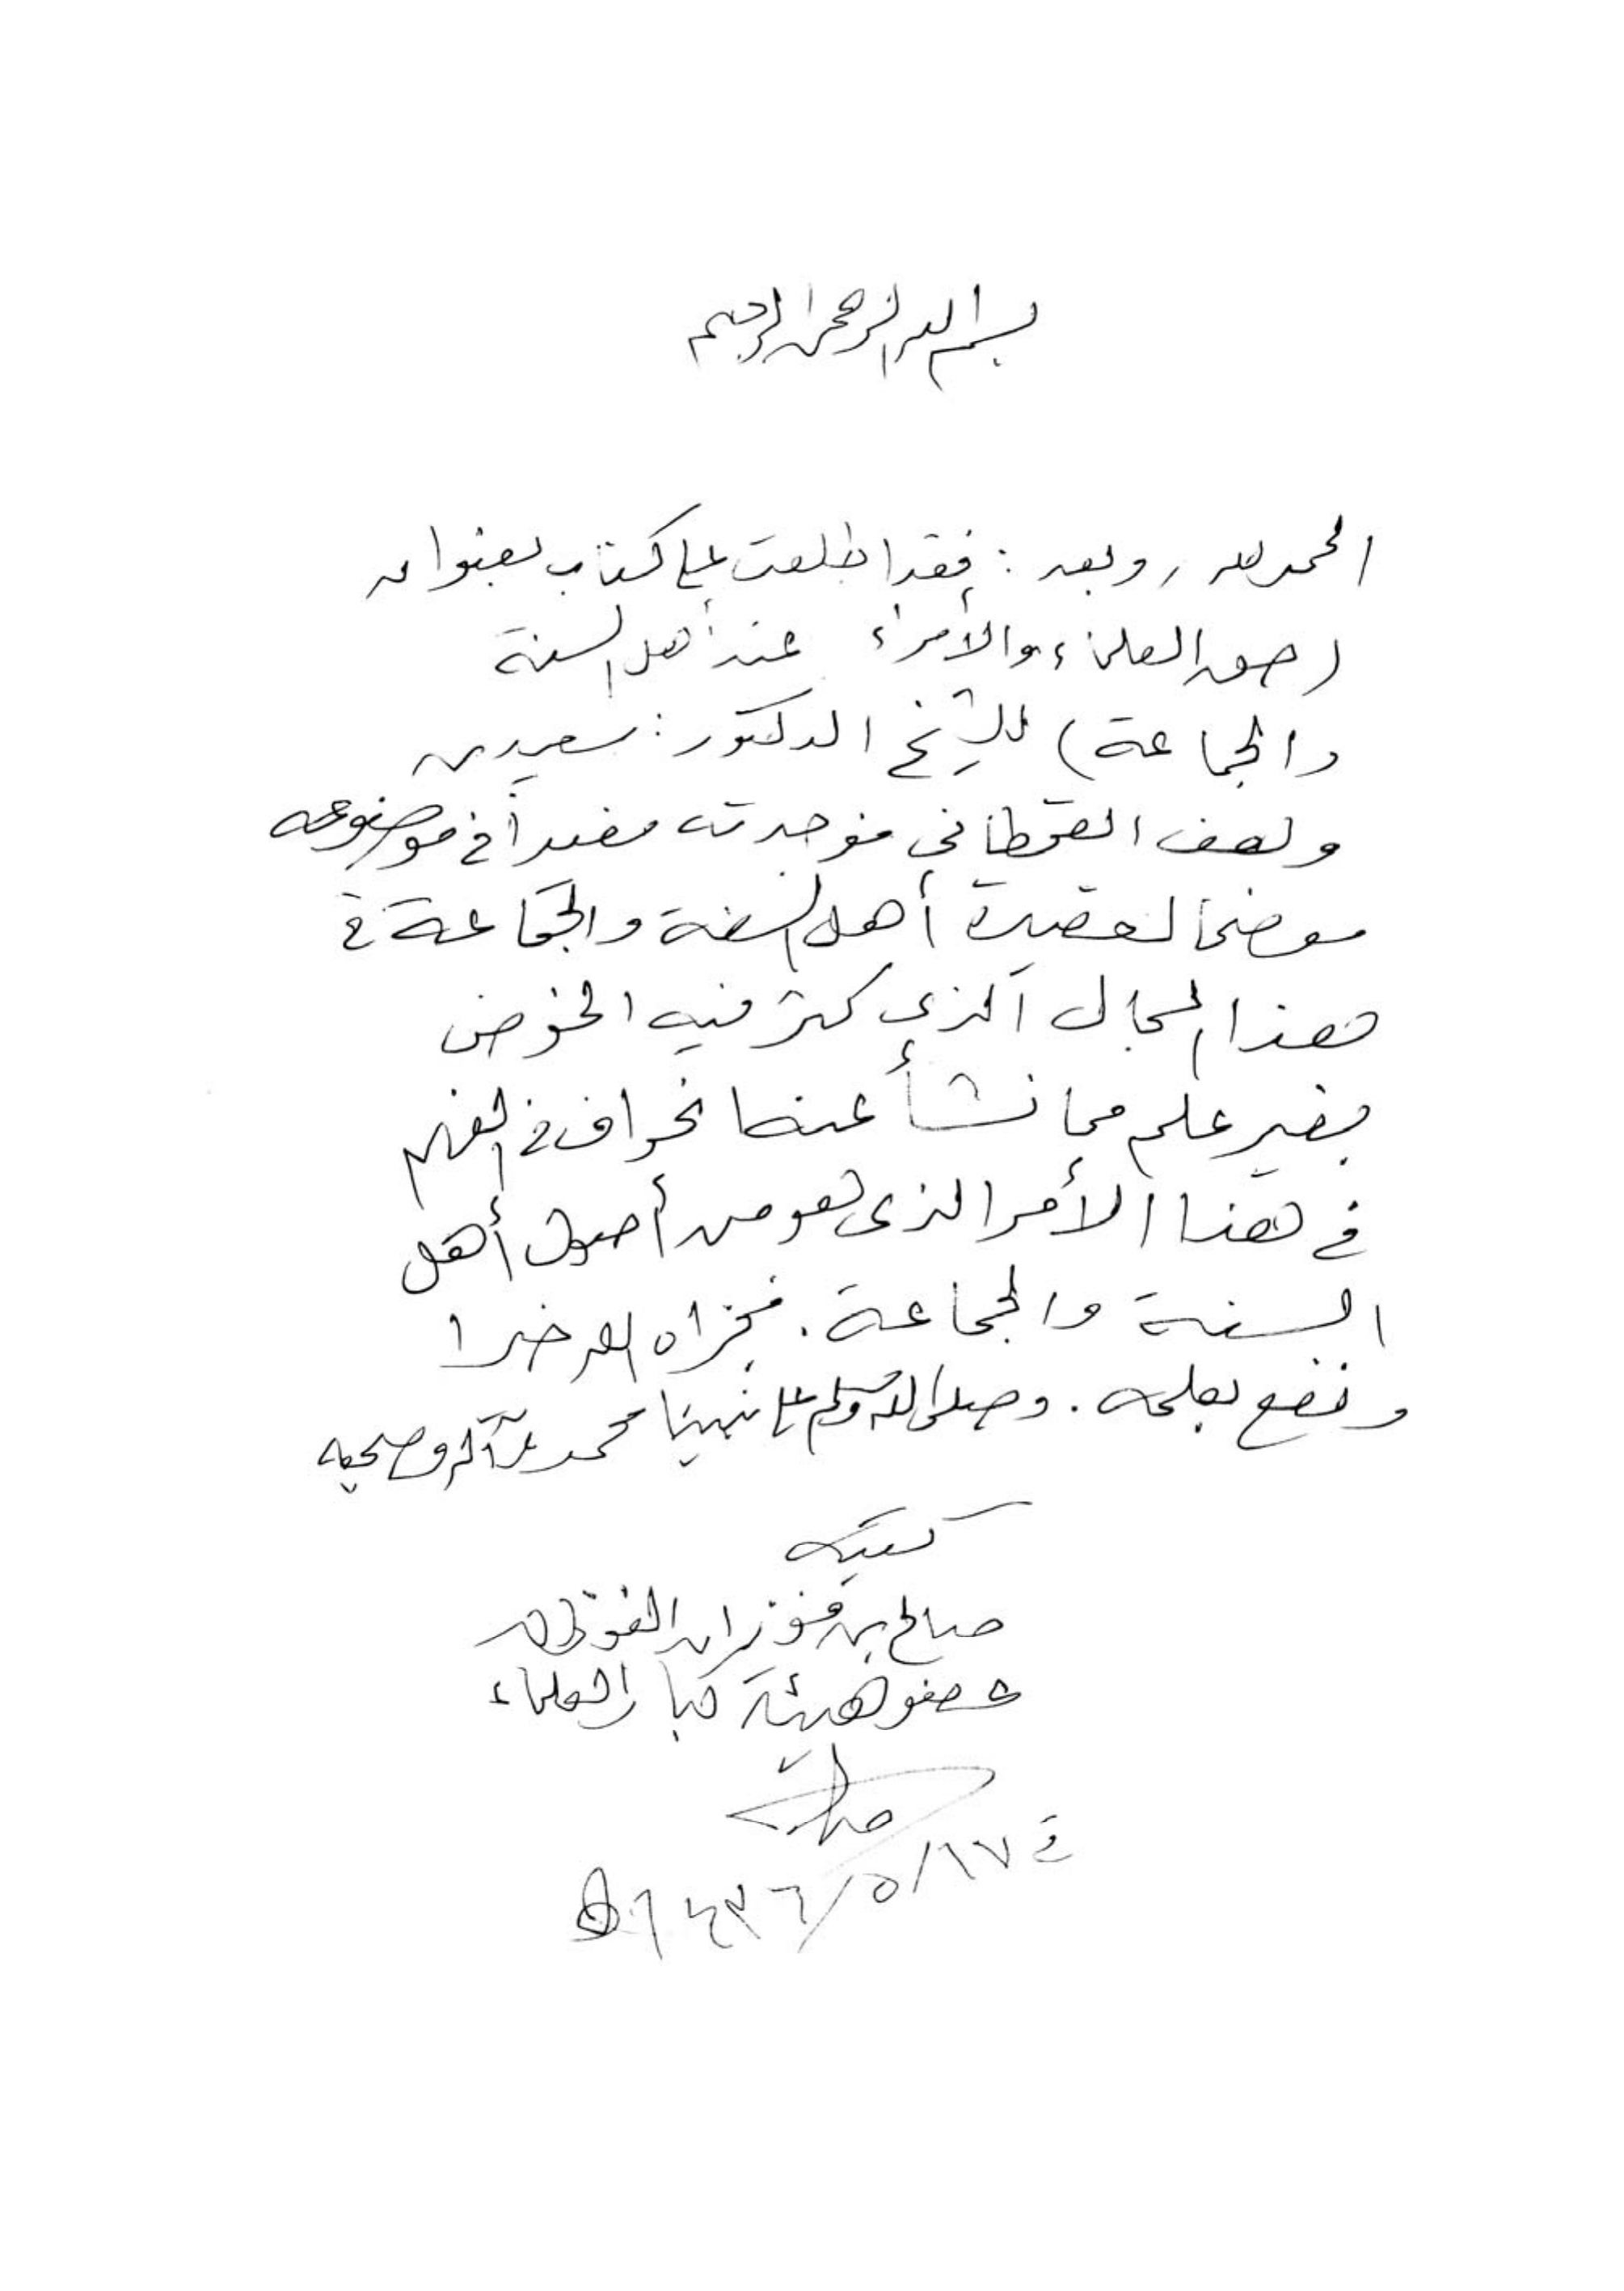 بسم الله الرحمن الرحيم
الحمد لله، وبعد: فقد اطلعت على كتاب بعنوان
(حق العلماء والأمراء عند أهل السنة
والجماعة) للشيخ الدكتور: سعيد بن
وهف القحطاني فوجدته مفيداً في موضوعه
موضحا لعقيدة أهل السنة والجماعة في
هذا المجال الذي كثر فيه الخوض
بغير علم مما نشأ عنه انحراف في الفهم
في هذا الأمر الذي هو من أصول أهل
السنة والجماعة. فجزاه الله خيرا
ونفع بعلمه. وصلى الله وسلم على نبينا محمد وآله وصحبه
كتبه
صالح بن فوزان الفوزان
عضو هيئة كبار العلماء
في ١٧/٥/١٤٣٦هـ